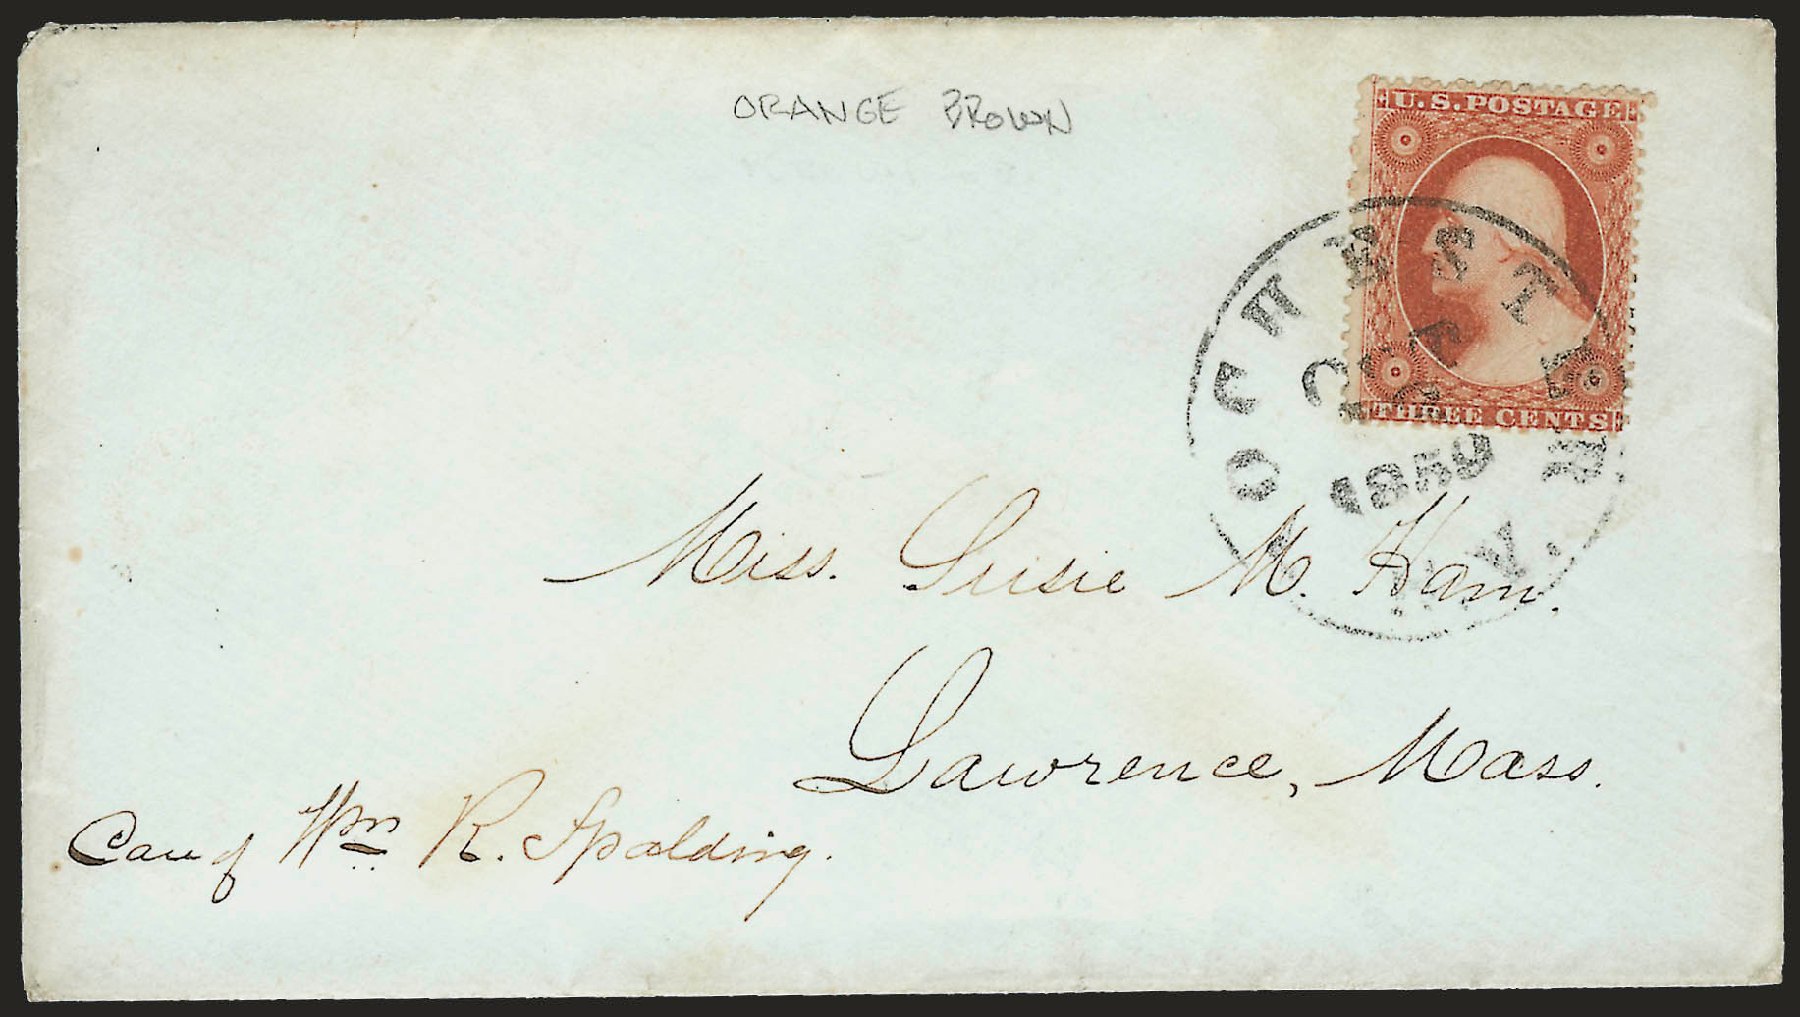 ORANGE BROWN
U.S. POSTAGE
THREE CENTS
ROCHESTER N.Y.
1859
Miss. Susie M. Ham.
Lawrence, Mass.
Care of Wm R. Spalding.